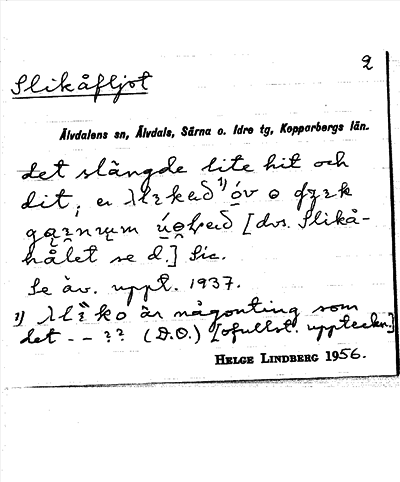 2
Slikåfljot
Älvdalens sn, Älvdals, Särna o. Idre tg, Kopparbergs län.
det slängde lite hit och
dit; [dvs. Slikå-
hålet se d.] Sic.
Se äv. uppt. 1937.
1) är någonting som
det - - ?? (D.O.) [ofullst. uppteckn.]
HELGE LINDBERG 1956.